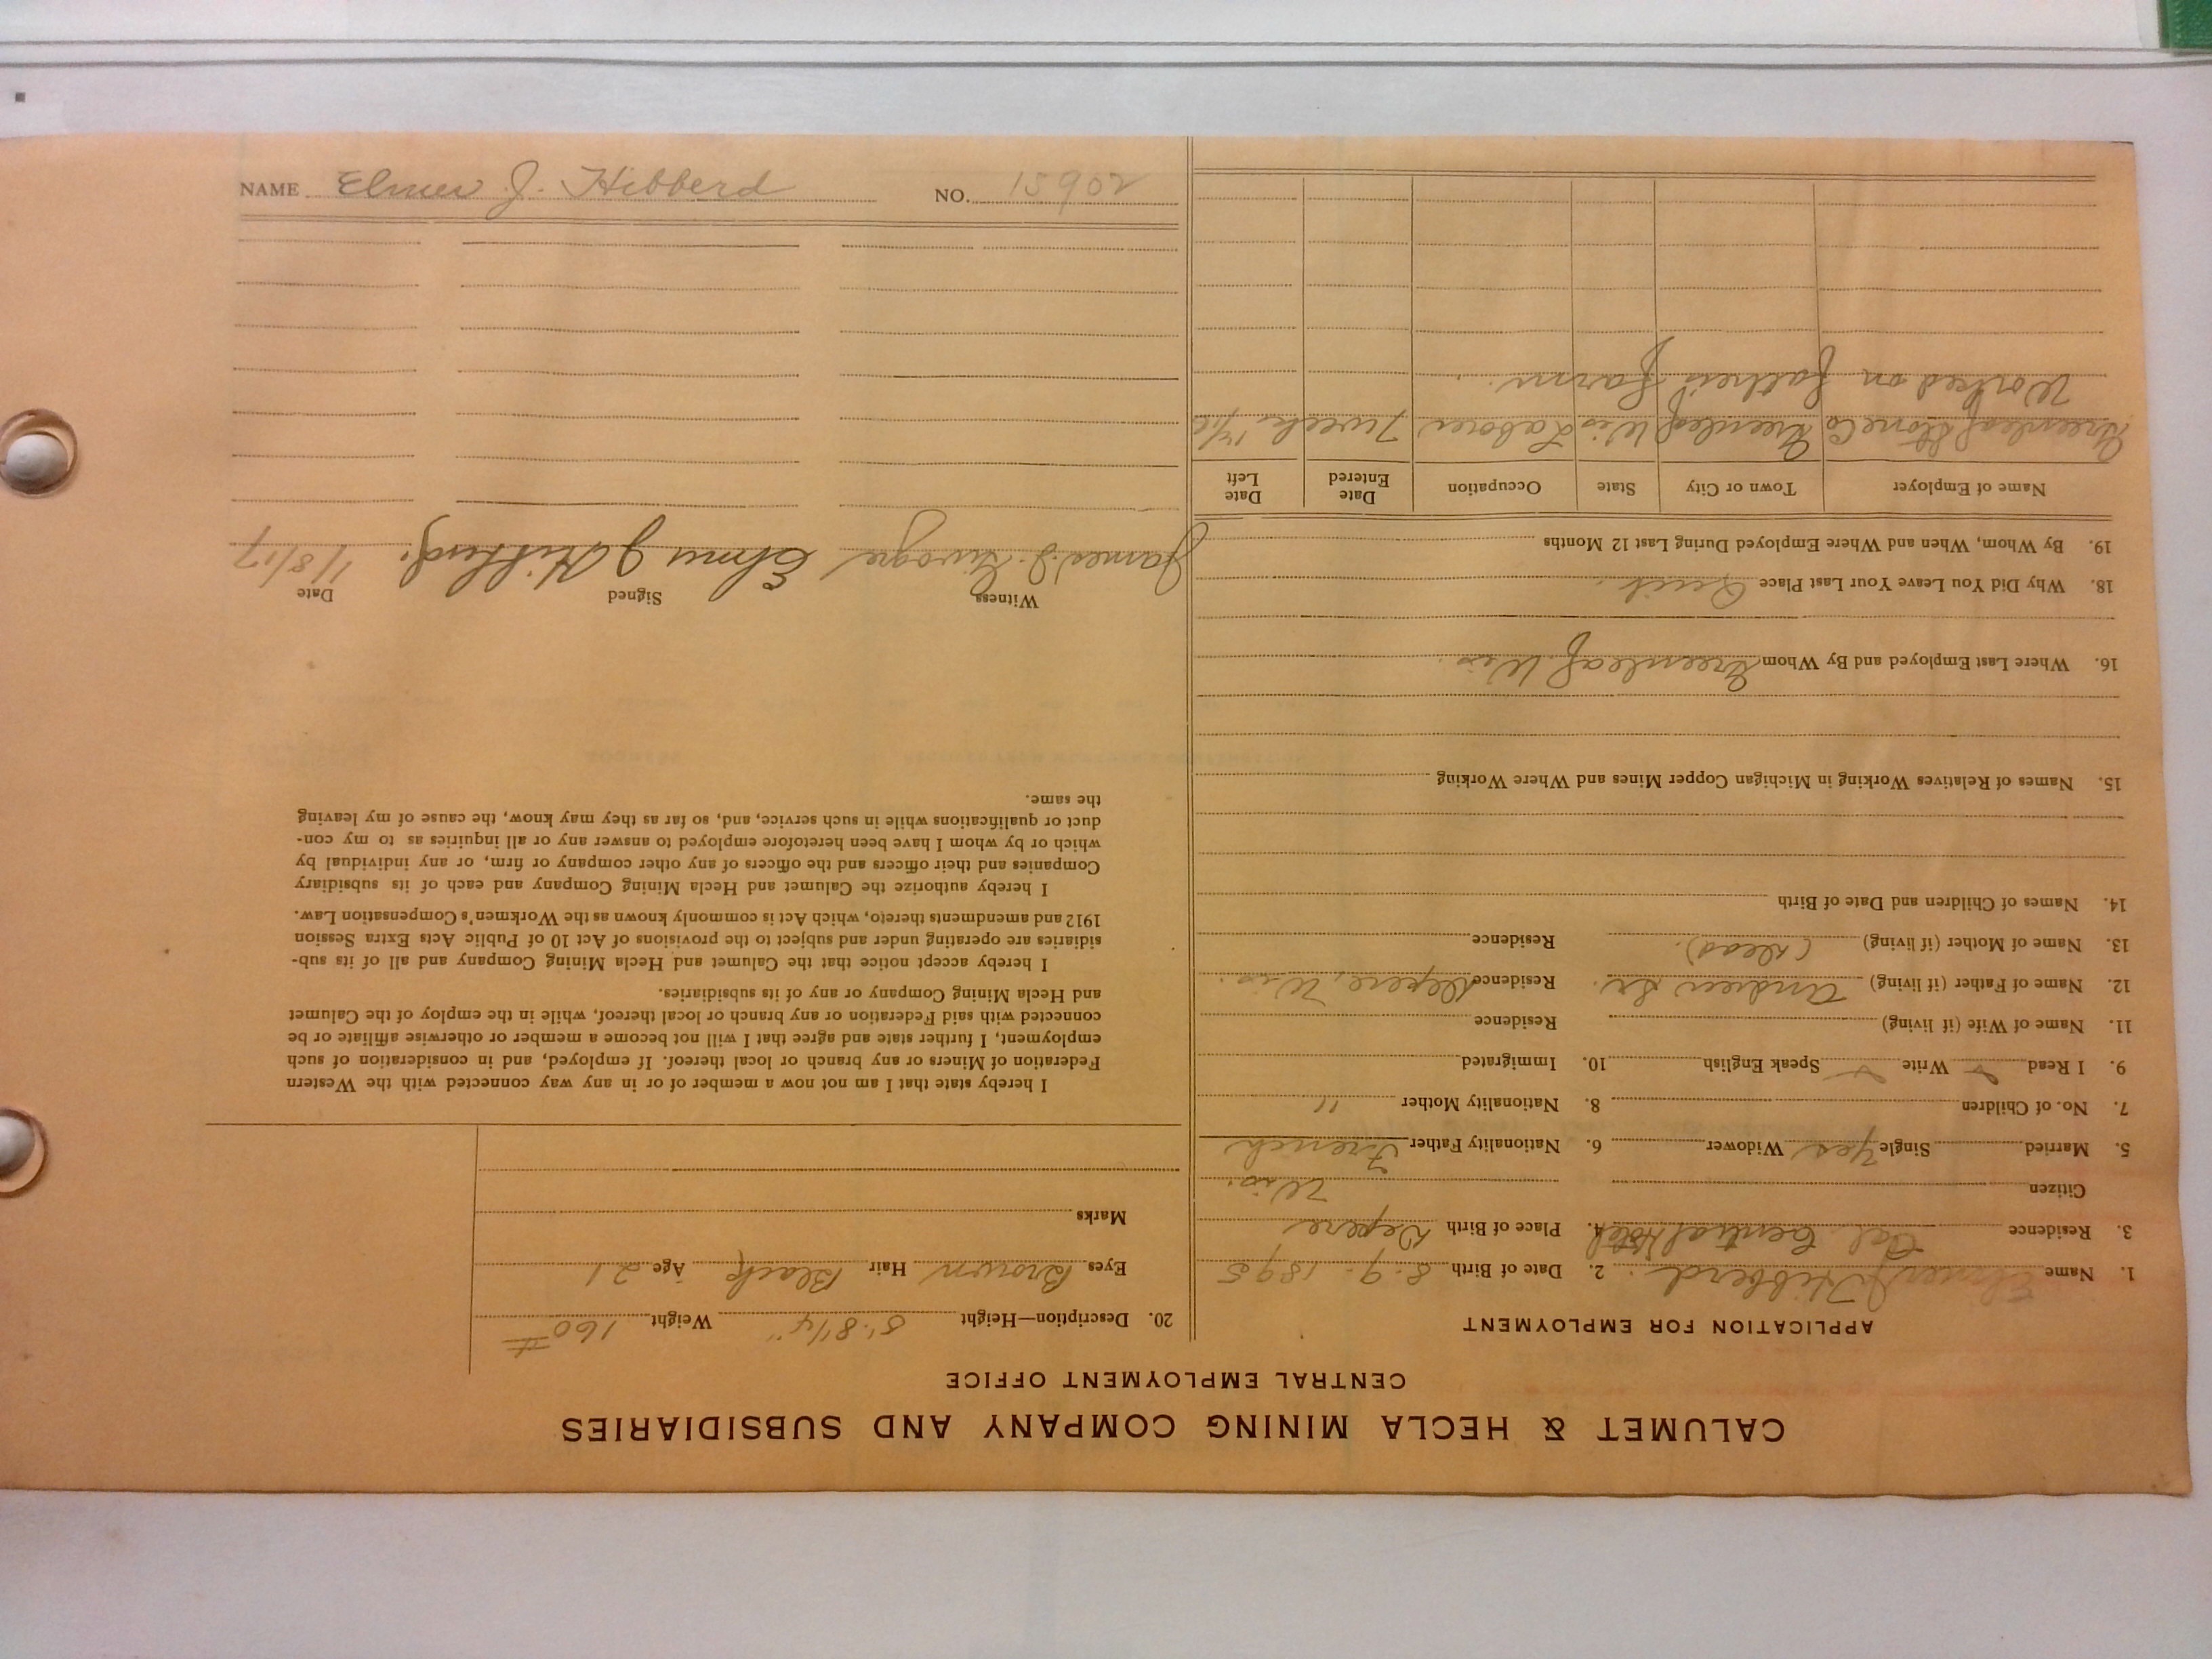 CALUMET & HECLA MINING COMPANY AND SUBSIDIARIES
CENTRAL EMPLOYMENT OFFICE
APPLICATION FOR EMPLOYMENT
1. Name Elmer J Hibberd. 2. Date of Birth 8-9-1895
3. Residence Cal. Central Hotel 4. Place of Birth Depere
Citizen Wis.
5. Married Single Yes Widower 6. Nationality Father French
7. No. of Children 8. Nationality Mother "
9. I Read ✓ Write ✓ Speak English 10. Immigrated
11. Name of Wife (if living) Residence
12. Name of Father (if living) Andrew Sr. Residence Depere, Wis.
13. Name of Mother (if living) (Dead). Residence
14. Names of Children and Date of Birth
15. Names of Relatives Working in Michigan Copper Mines and Where Working
16. Where Last Employed and By Whom Greenleaf Wis.
18. Why Did You Leave Your Last Place Quit.
19. By Whom, When and Where Employed During Last 12 Months
Name of Employer Town or City State Occupation Date Entered Date Left
Greenleaf Stone Co Greenleaf Wis Laborer 1 week
Worked on father's farm.
20. Description—Height 5'. 8 1/4" Weight 160 #
Eyes Brown Hair Black Age 21
Marks
I hereby state that I am not now a member of or in any way connected with the Western
Federation of Miners or any branch or local thereof. If employed, and in consideration of such
employment, I further state and agree that I will not become a member or otherwise affiliate or be
connected with said Federation or any branch or local thereof, while in the employ of the Calumet
and Hecla Mining Company or any of its subsidiaries.
I hereby accept notice that the Calumet and Hecla Mining Company and all of its sub-
sidiaries are operating under and subject to the provisions of Act 10 of Public Acts Extra Session
1912 and amendments thereto, which Act is commonly known as the Workmen's Compensation Law.
I hereby authorize the Calumet and Hecla Mining Company and each of its subsidiary
Companies and their officers and the officers of any other company or firm, or any individual by
which or by whom I have been heretofore employed to answer any or all inquiries as to my con-
duct or qualifications while in such service, and, so far as they may know, the cause of my leaving
the same.
Witness Signed Date
James D. Elmer J Hibberd. 1/8/17
NAME Elmer J. Hibberd NO. 15902